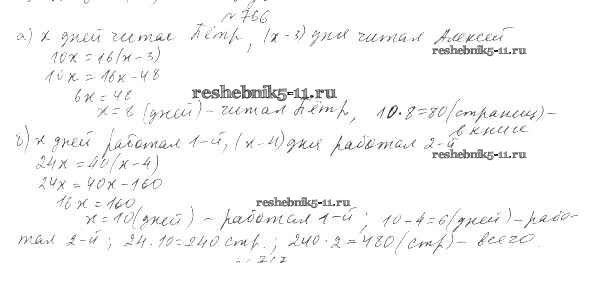 №766
а) x дней читал Пётр, (x-3) дня читал Алексей
reshebnik5-11.ru
10x = 16(x-3)
10x = 16x-48
6x = 48
reshebnik5-11.ru
x = 8 (дней) - читал Пётр, 10·8=80 (страниц) -
в книге
б) x дней работал 1-й, (x-4) дня работал 2-й
reshebnik5-11.ru
24x = 40(x-4)
24x = 40x-160
16x = 160
reshebnik5-11.ru
x = 10 (дней) - работал 1-й; 10-4=6 (дней) - рабо-
тал 2-й; 24·10=240 стр.; 240·2=480 (стр) - всего.